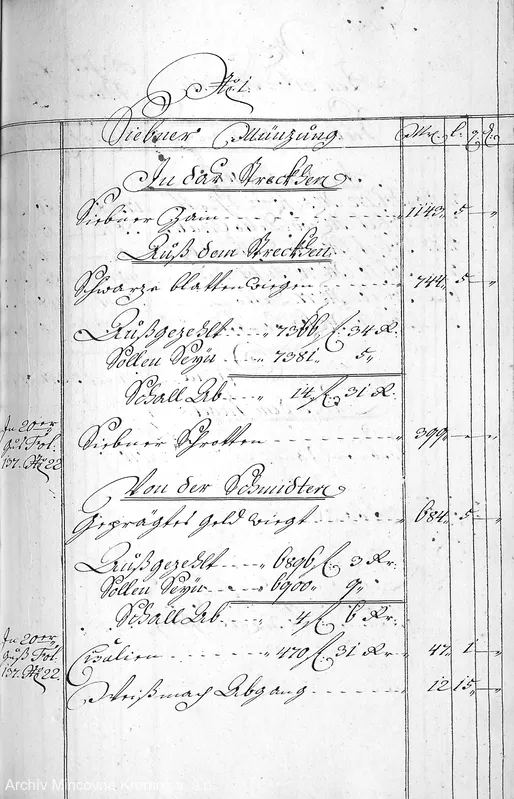 No 1.
Siebner Münzung Mk. l. q. d.
In das Streckhen
Siebner Zain 1143. 5 - "
Auß dem Streckhen
Schwarze blatten wiegen 744. 5 - "
Außgezehlt 7366 f: 34 Kr.
Sollen Seyn 7381. 5 "
Schall Ab 14 f: 31 Kr.
In 20er
guß Fol.
137. No 22
Siebner Schrotten 399 - - "
Von der Schmidten
Geprägtes geld wiegt 684. 5 - "
Außgezehlt 6896 f: 3 Kr.
Sollen Seyn 6900. 9 "
Schall Ab 4 f: 6 Kr.
In 20er
guß Fol.
137. No 22
Cisalien 470 f: 31 Kr 47. 1 - "
Weißmach Abgang 12 15 - "
Archiv Mincovne Kremnica, š.p.